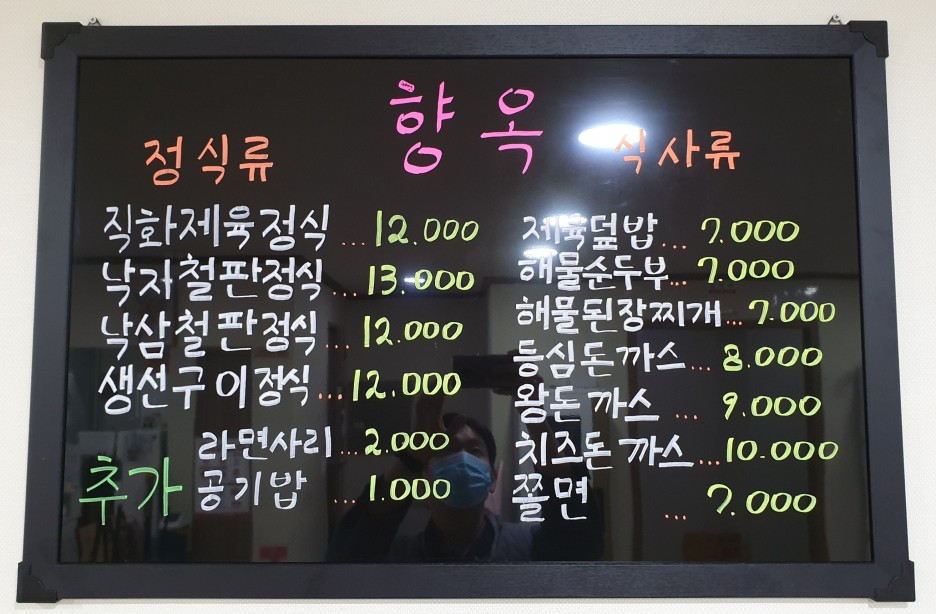 향옥
정식류
직화제육정식 ... 12.000
낙지철판정식 ... 13.000
낙삼철판정식 ... 12.000
생선구이정식 ... 12.000
추가
라면사리 ... 2.000
공기밥 ... 1.000
식사류
제육덮밥 ... 7.000
해물순두부 ... 7.000
해물된장찌개 ... 7.000
등심돈까스 ... 8.000
왕돈까스 ... 9.000
치즈돈까스 ... 10.000
쫄면 ... 7.000